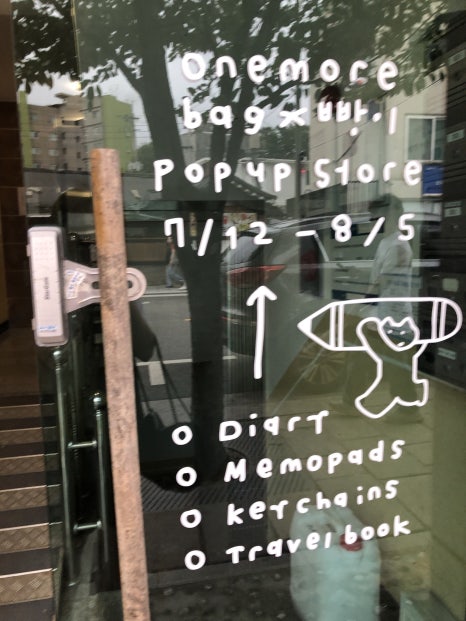 Onemore
bag ×
Popup Store
7/12 - 8/5
o Diary
o Memopads
o keychains
o Travel book